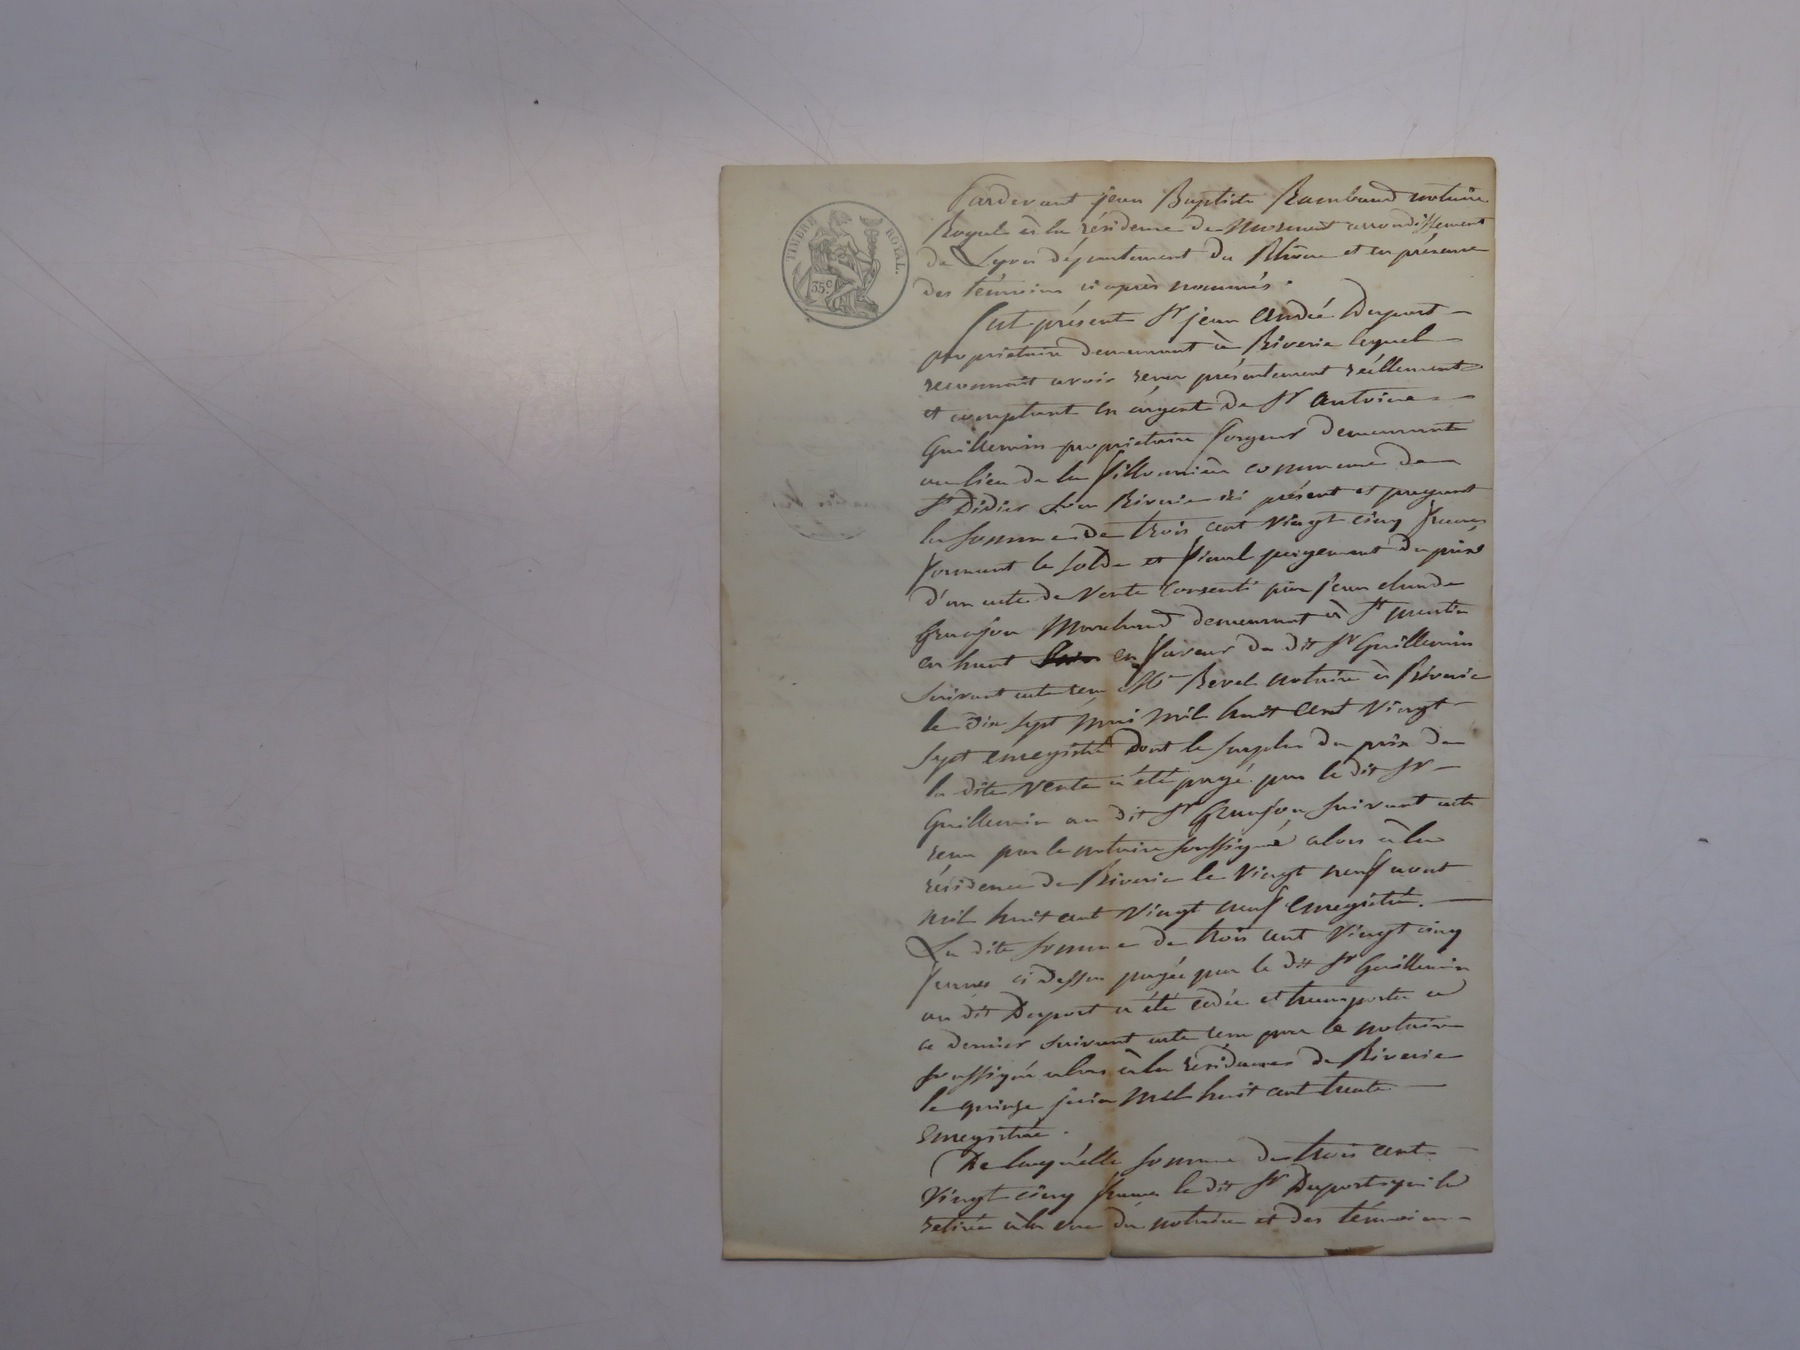 TIMBRE ROYAL.
35.c
Pardevant jean Baptiste Rambaud notaire
Royal à la résidence de Mornant arrondissement
de Lyon département du Rhône et en présence
des témoins ci après nommés.
fut présent Sr jean André Duport
propriétaire demeurant à Riverie lequel
reconnait avoir recu présentement réellement
et comptant en argent de Sr Antoine
Guillemin propriétaire forgeur demeurant
au lieu de la commune de
St Didier sous Riverie ici présent et payant
la somme de trois cent vingt cinq francs
formant le solde et final payement du prix
d'un acte de Vente consenti par jean claude
Granjon Marchand demeurant à St martin
en haut en faveur du dit Sr Guillemin
suivant acte recu Me Revel notaire à Riverie
le dix sept mai mil huit cent vingt
sept enregistré dont le surplus du prix de
la dite Vente a été payé par le dit Sr
Guillemin au dit Sr Granjon suivant acte
recu par le notaire soussigné alors à la
résidence de Riverie le vingt neuf aout
mil huit cent vingt neuf enregistré.
La dite somme de trois cent vingt cinq
francs ci dessus payée par le dit Sr Guillemin
au dit Duport a été cédée et transportée à
ce dernier suivant acte recu par le notaire
soussigné alors à la résidences de Riverie
le quinze juin mil huit cent trente
Enregistrée.
De laquelle somme de trois cent
vingt cinq francs le dit Sr Duport qui l'a
retirée à la vue du notaire et des témoins